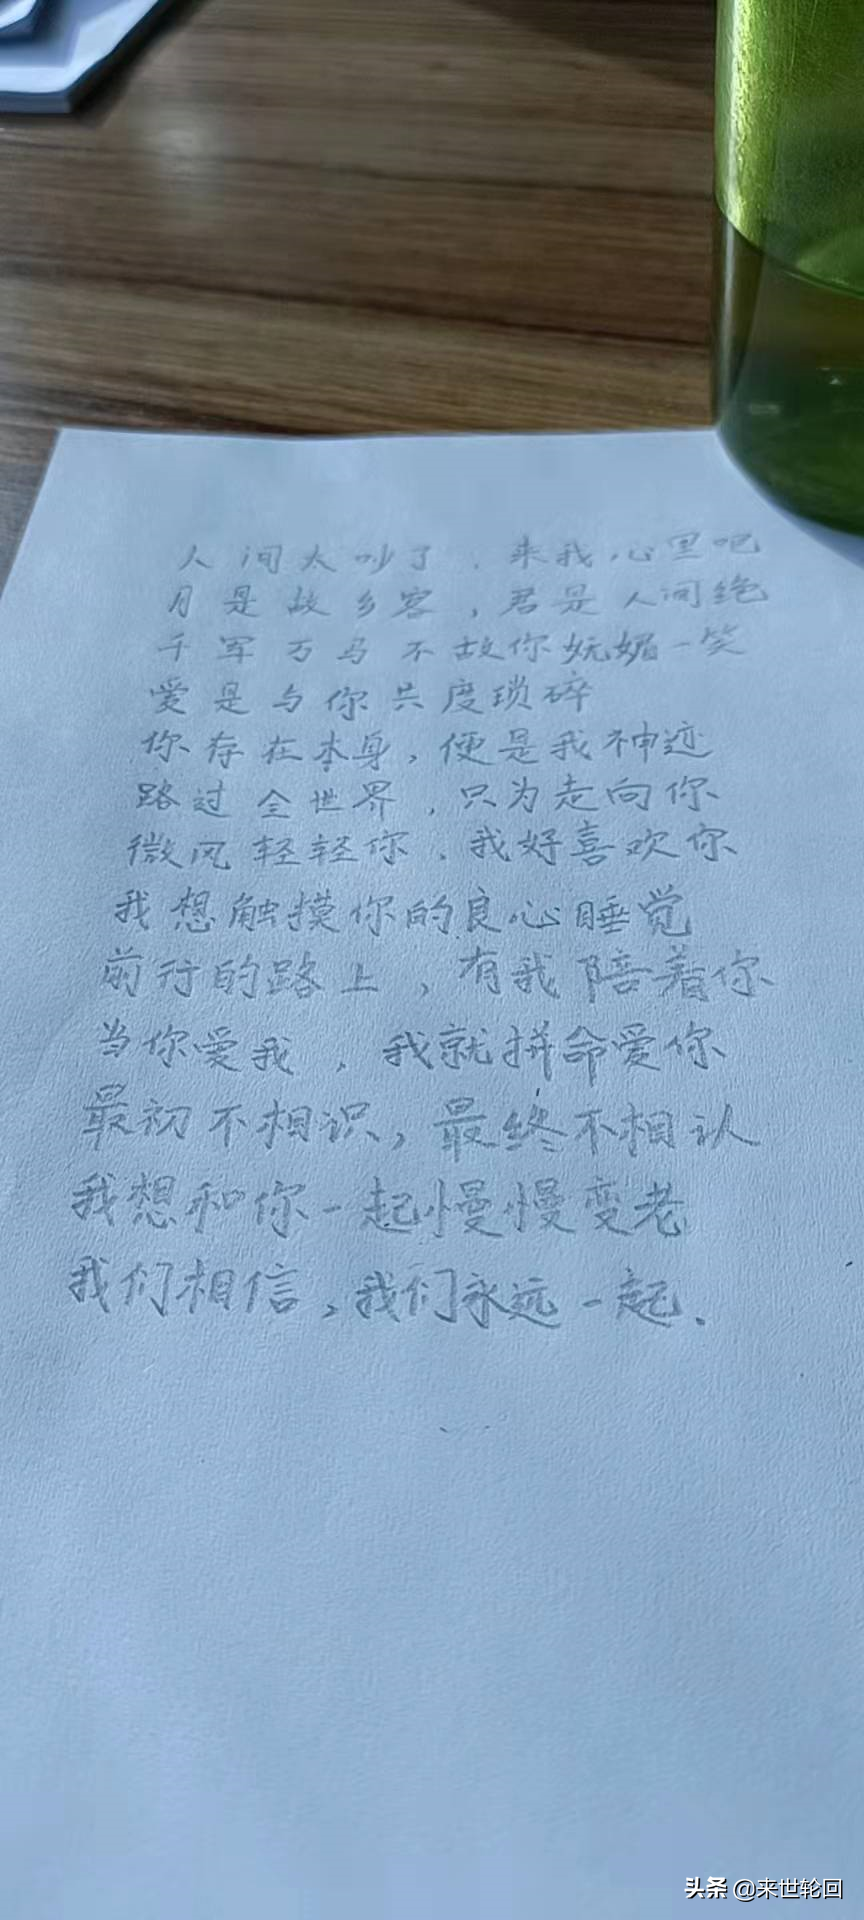 人间太吵了，来我心里吧
月是故乡客，君是人间绝
千军万马不故你妩媚一笑
爱是与你共度琐碎
你存在本身，便是我神迹
路过全世界，只为走向你
微风轻轻你，我好喜欢你
我想触摸你的良心睡觉
前行的路上，有我陪着你
当你爱我，我就拼命爱你
最初不相识，最终不相认
我想和你一起慢慢变老
我们相信，我们永远一起.
头条 @来世轮回